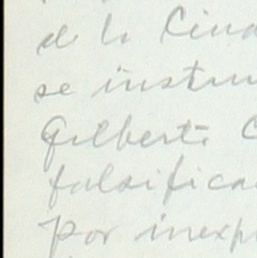 de la Ciud
se instru
Gilberto C
falsifica
por inexp